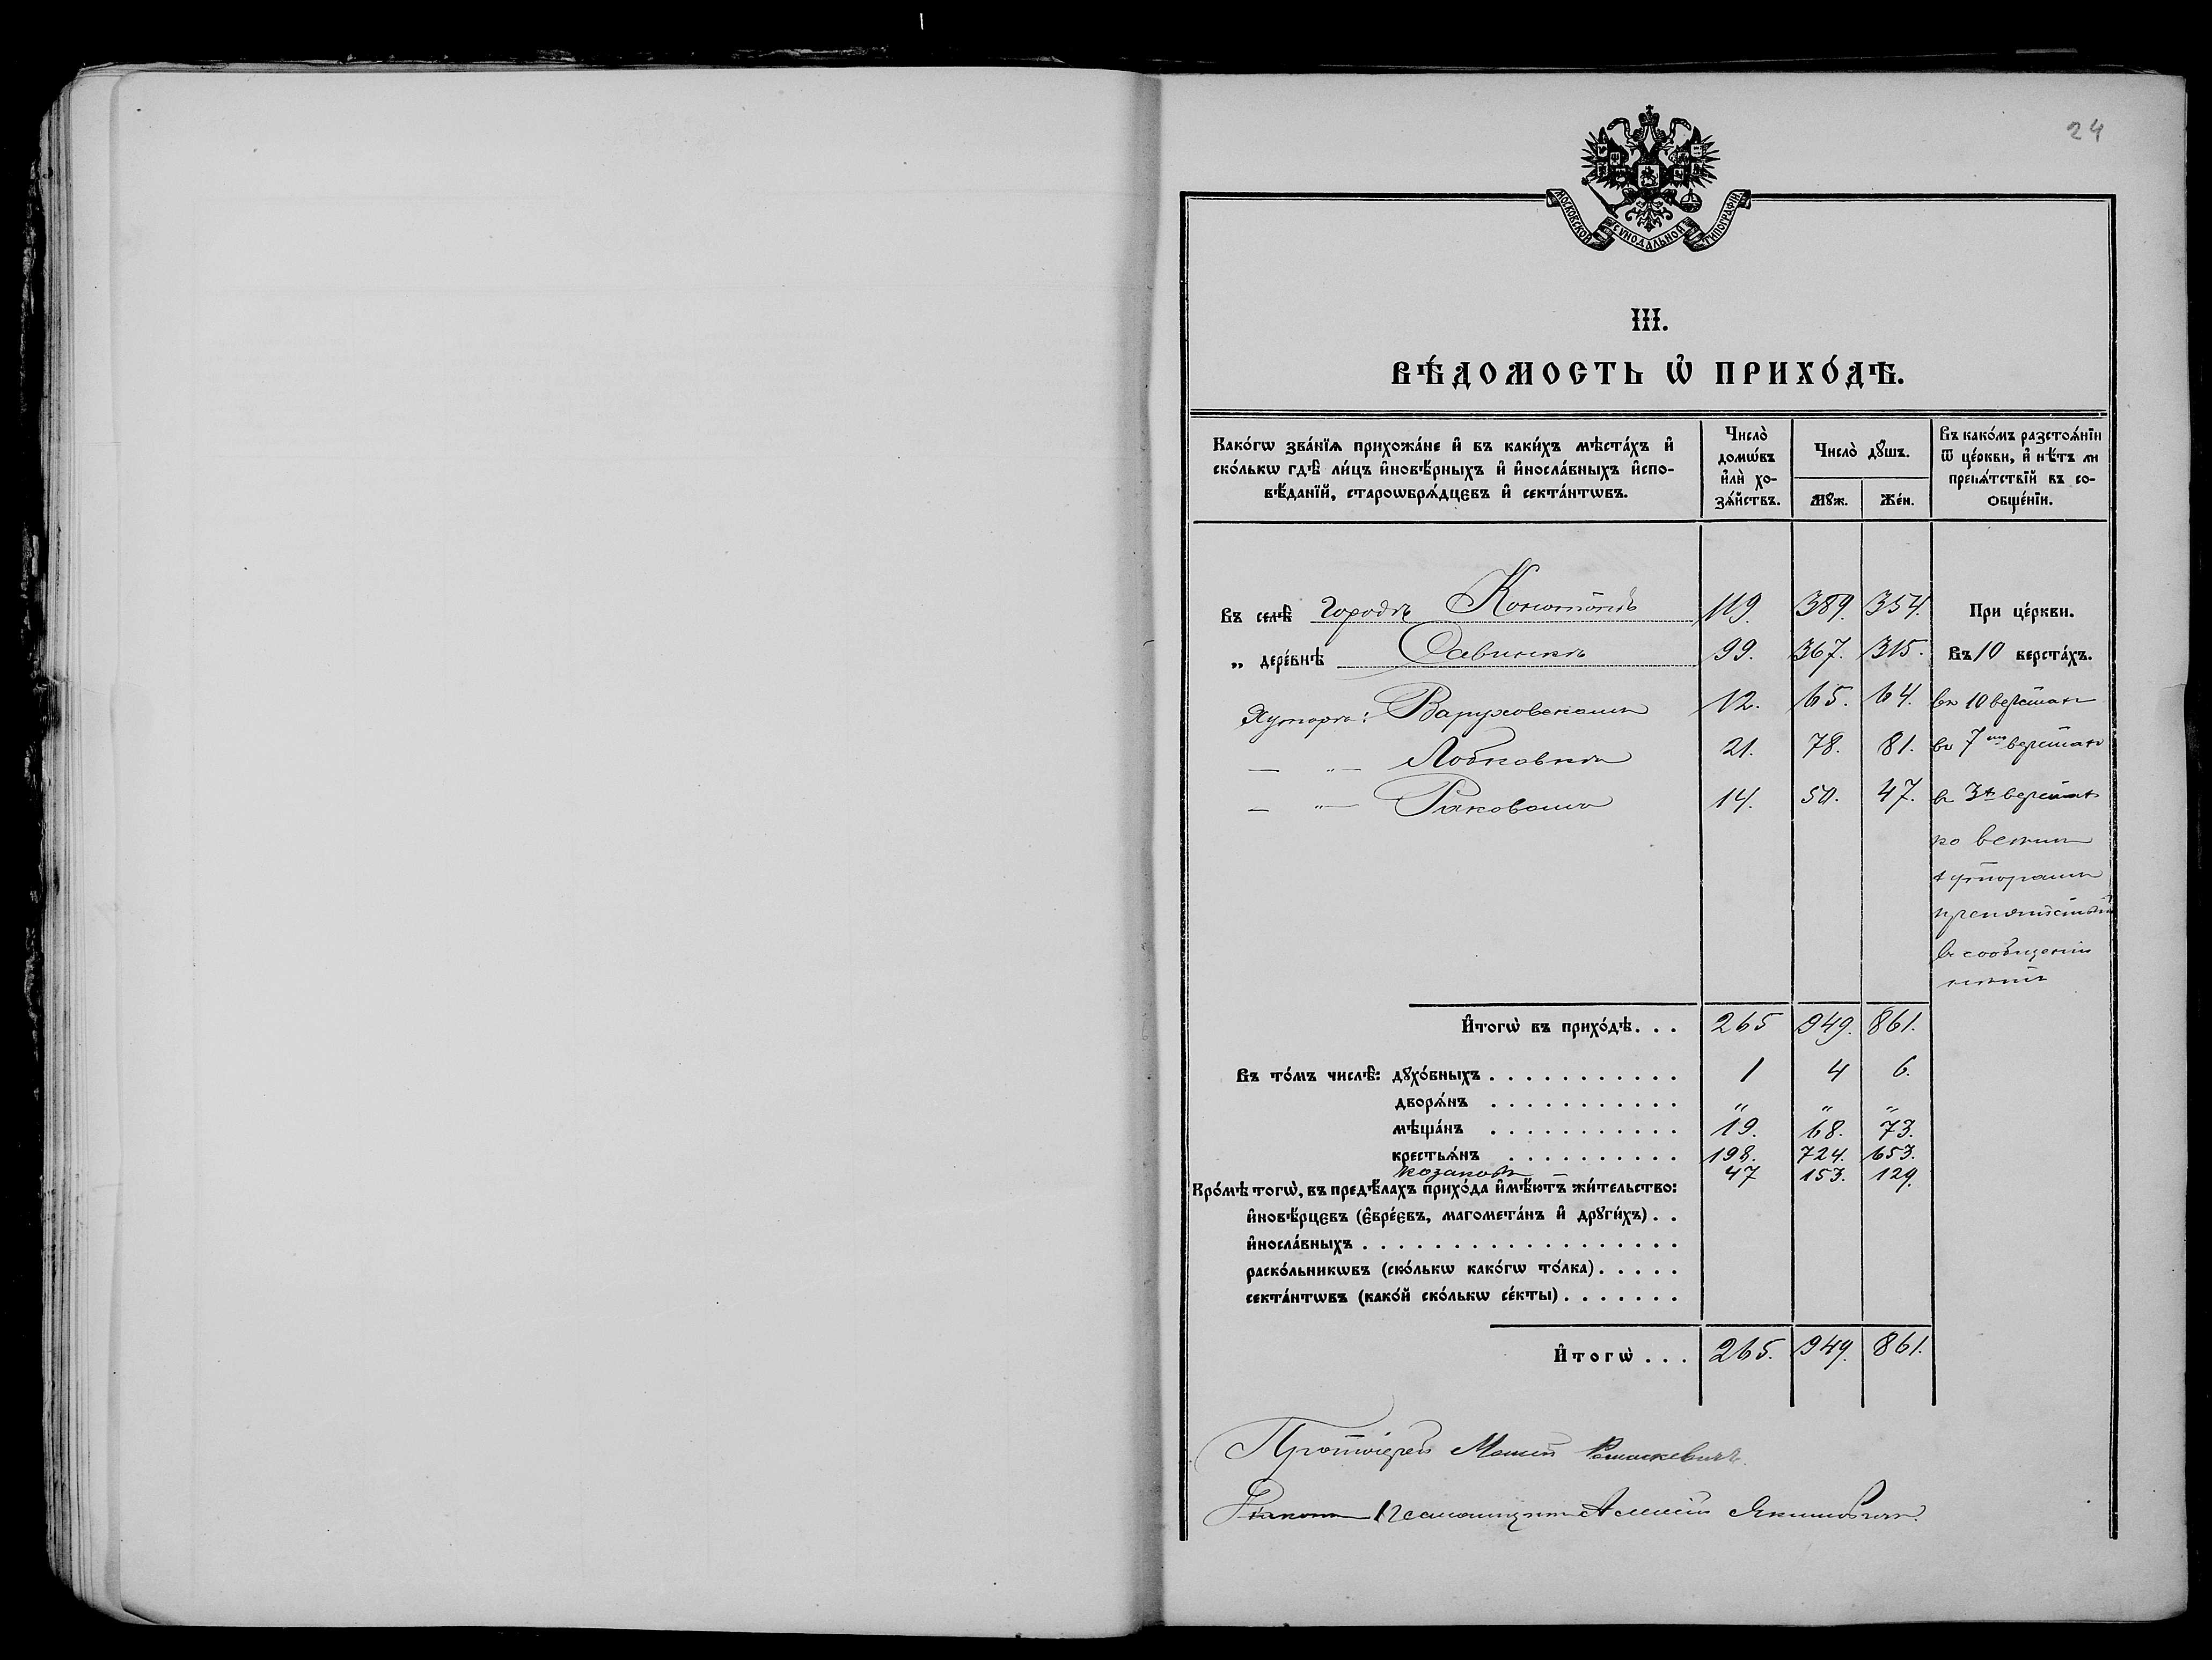 24
МОСКОВСКОЙ СѴНОДАЛЬНОЙ ТИПОГРАФІИ.
III.
ВѢ́ДОМОСТЬ Ѡ҆ ПРИХО́ДѢ.
Како́гѡ зва́нїѧ прихожа́не и҆ въ каки́хъ мѣста́хъ и҆ ско́лькѡ гдѣ̀ ли́цъ и҆новѣ́рныхъ и҆ и҆носла́вныхъ и҆сповѣ́данїй, староѡбрѧ́дцєвъ и҆ секта́нтѡвъ.
Число̀ домѡ́въ и҆лѝ хозѧ́йствъ.
Число̀ дꙋ́шъ.
Мꙋ́ж.
Же́н.
Въ како́мъ разстоѧ́нїи ѿ це́ркви, и҆ нѣ́тъ ли препѧ́тствїй въ соѻбще́нїи.
Въ селѣ̀ Городѣ Конотопѣ 119. 389. 354. При це́ркви.
„ дере́внѣ Савинкѣ 99. 367. 315. Въ 10 верста́хъ.
Хуторѣ: Варуховскомъ 12. 65. 64. въ 10 верстахъ
— „ — Лобковкѣ 21. 78. 81. въ 7ми верстахъ
— „ — Раковомъ 14. 50. 47. въ 3х верстахъ
ко всѣмъ
хуторамъ
препятствій
въ сообщеніи
нѣтъ
И҆тогѡ̀ въ прихо́дѣ. . . 265 949. 861.
Въ то́мъ числѣ̀: дꙋхо́вныхъ . . . . . . . . . . . 1 4 6.
дворѧ́нъ . . . . . . . . . . . „ „ „
мѣща́нъ . . . . . . . . . . . 19. 68. 73.
крестьѧ́нъ . . . . . . . . . . 198. 724. 653.
козаковъ — 47 153. 129.
Кро́мѣ тогѡ̀, въ предѣ́лахъ прихо́да и҆мѣ́ютъ жи́тельство:
и҆новѣ́рцєвъ (є҆вре́євъ, магомета́нъ и҆ дрꙋги́хъ) . .
и҆носла́вныхъ . . . . . . . . . . . . . . . . . .
раско́льникѡвъ (ско́лькѡ како́гѡ то́лка) . . . . .
секта́нтѡвъ (како́й ско́лькѡ се́кты) . . . . . . .
И҆тогѡ̀ . . . 265. 949. 861.
Протоіерей Ромаскевичъ.
Діаконъ Псаломщикъ Алексій Якимовичъ.